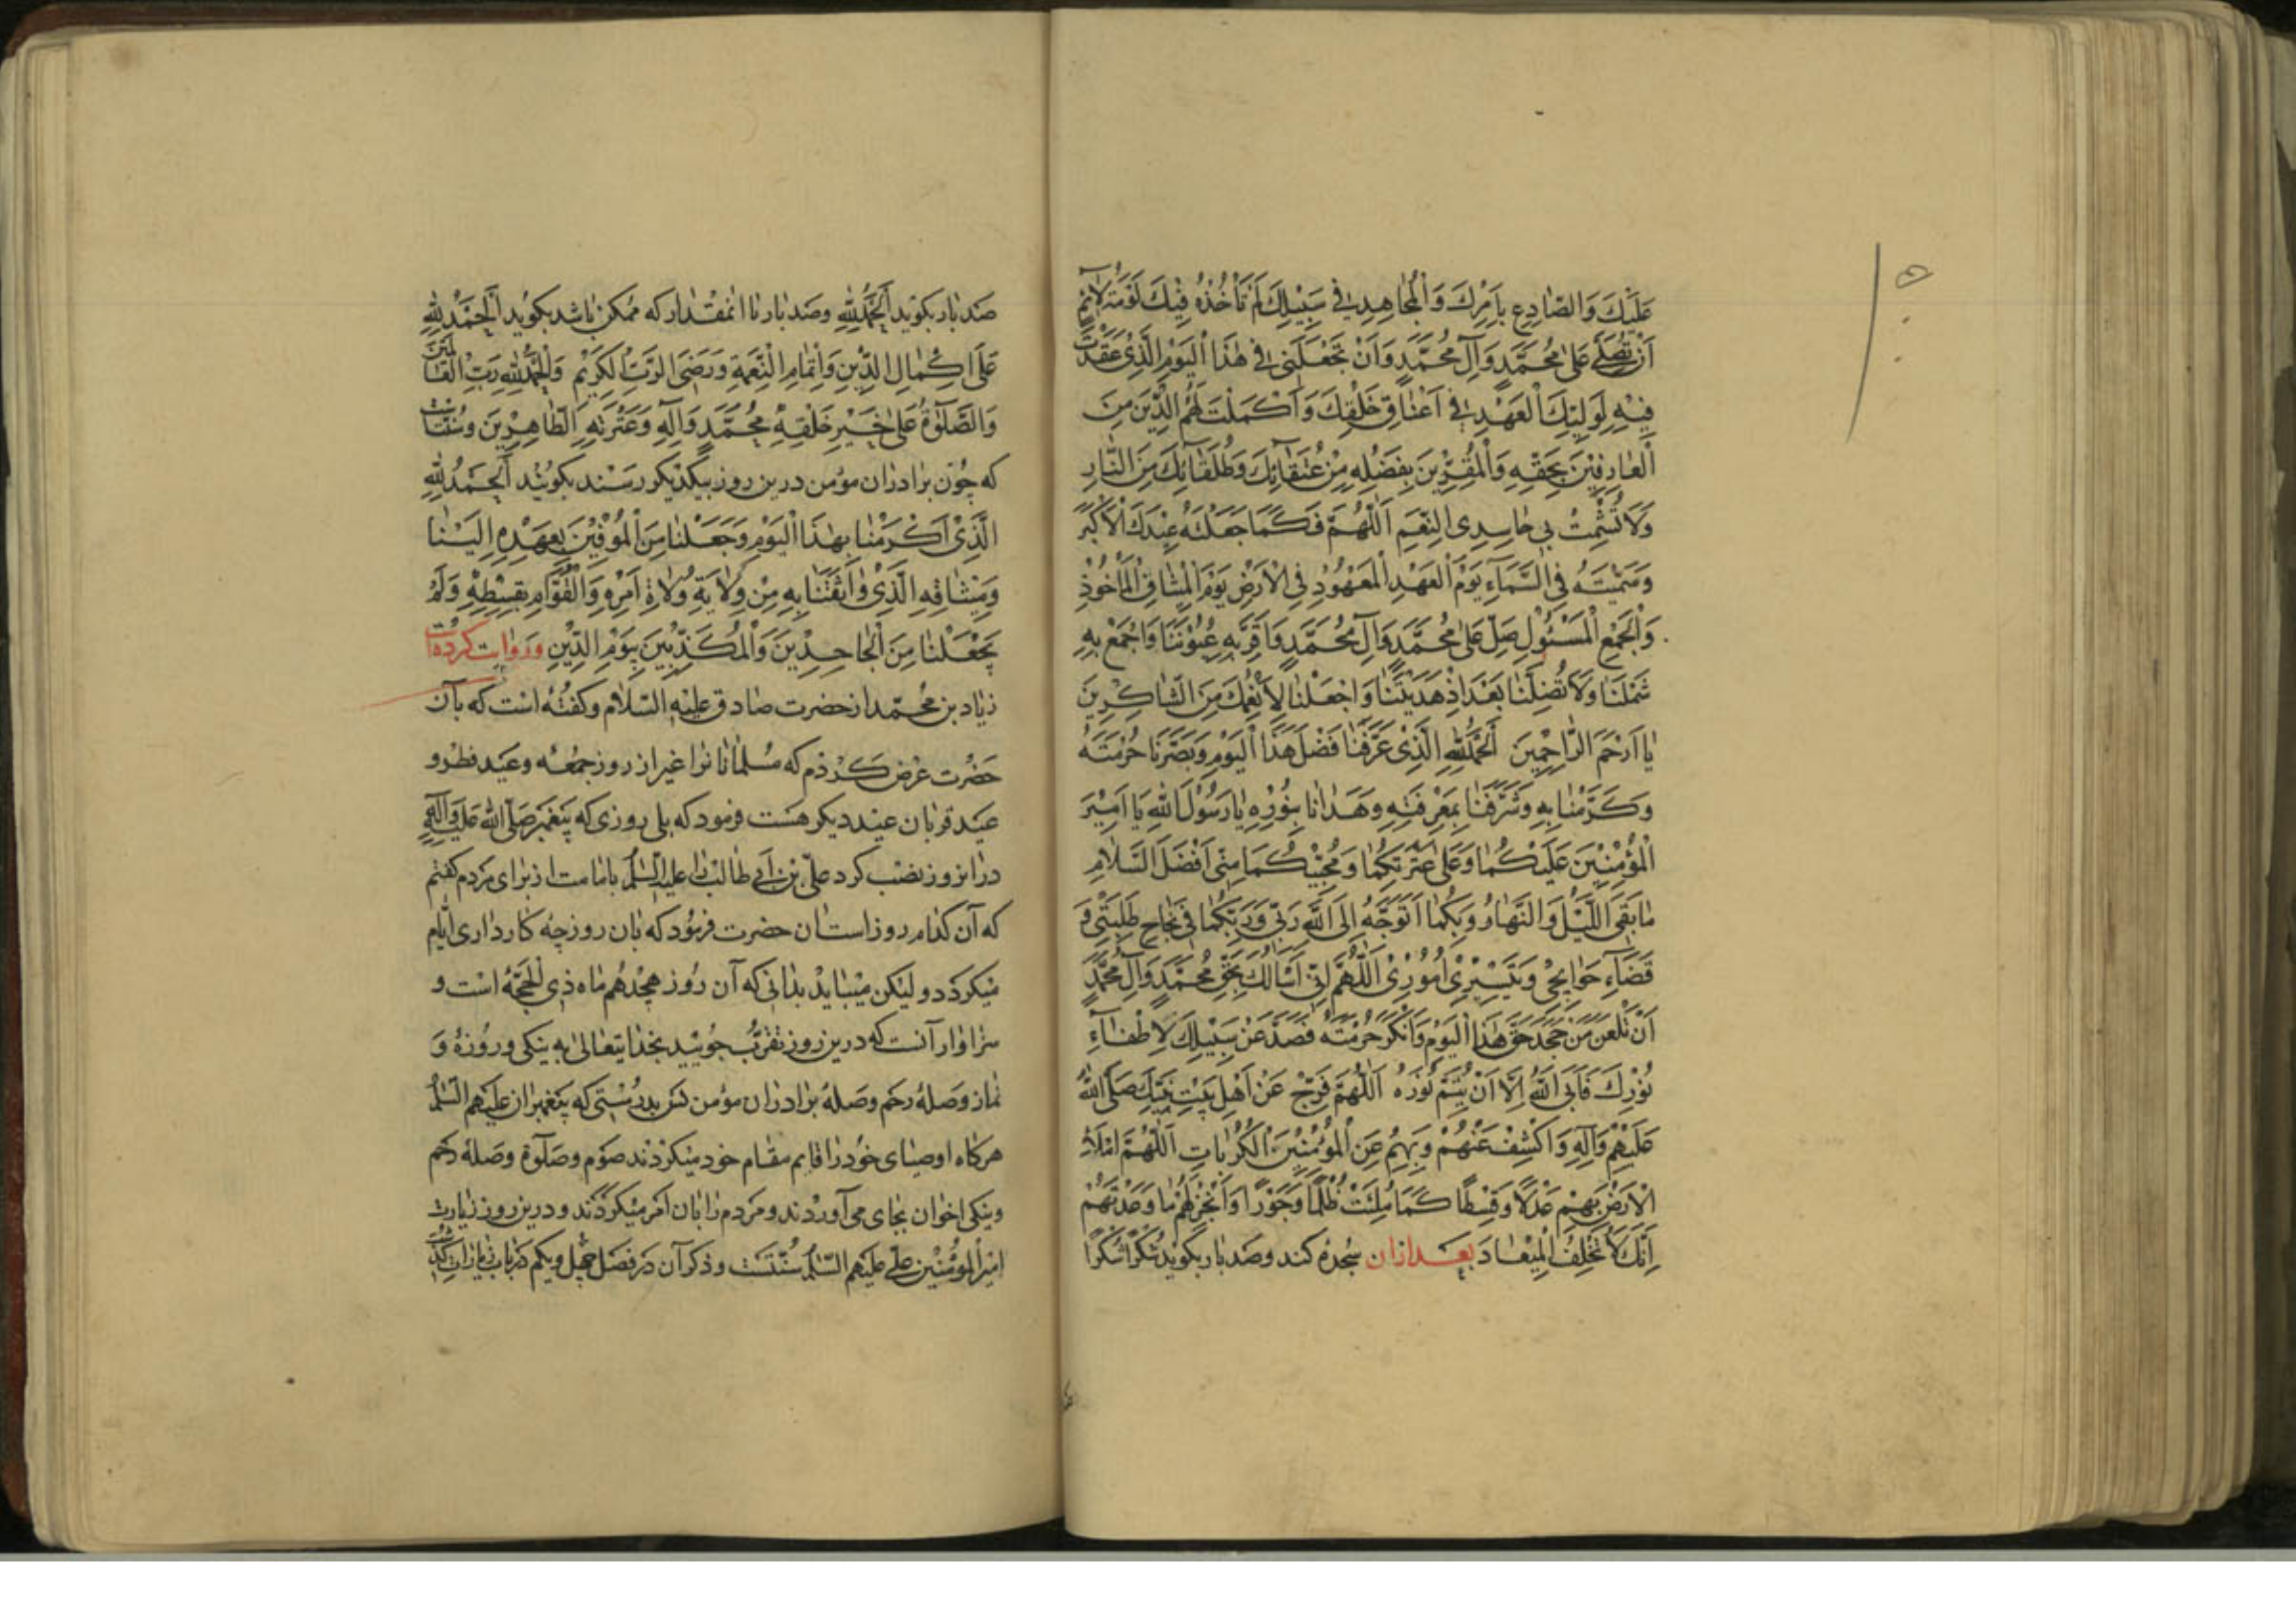 عَلَيْكَ وَالصّادِعِ بِاَمْرِكَ وَالْمُجاهِدِ في سَبيلِكَ لَمْ تَأْخُذْهُ فيكَ لَوْمَةُ لآئِمٍ
اَنْ تُصَلِّيَ عَلى مُحَمَّدٍ وَآلِ مُحَمَّدٍ وَاَنْ تَجْعَلَنى في هٰذَا الْيَوْمِ الَّذى عَقَدْتَ
فيهِ لِوَلِيِّكَ الْعَهْدَ في اَعْناقِ خَلْقِكَ وَاَكْمَلْتَ لَهُمُ الدّينَ مِنَ
الْعارِفينَ بِحَقِّهِ وَالْمُقِرّينَ بِفَضْلِهِ مِنْ عُتَقآئِكَ وَطُلَقآئِكَ مِنَ النّارِ
وَلا تُشْمِتْ بى حاسِدِى النِّعَمِ اَللّهُمَّ فَكَما جَعَلْتَهُ عيدَكَ الْاَكْبَرَ
وَسَمَّيْتَهُ فِى السَّمآءِ يَوْمَ الْعَهْدِ الْمَعْهُودِ فِى الْاَرْضِ يَوْمَ الْميثاقِ الْمَأْخُوذِ
وَالْجَمْعِ الْمَسْئُولِ صَلِّ عَلى مُحَمَّدٍ وَآلِ مُحَمَّدٍ وَاَقْرِرْ بِهِ عُيُونَنا وَاجْمَعْ بِهِ
شَمْلَنا وَلا تُضِلَّنا بَعْدَ اِذْ هَدَيْتَنا وَاجْعَلْنا لِاَنْعُمِكَ مِنَ الشّاكِرينَ
يا اَرْحَمَ الرّاحِمينَ اَلْحَمْدُ لِلّهِ الَّذى عَرَّفَنا فَضْلَ هٰذَا الْيَوْمِ وَبَصَّرَنا حُرْمَتَهُ
وَكَرَّمَنا بِهِ وَشَرَّفَنا بِمَعْرِفَتِهِ وَهَدانا بِنُورِهِ يا رَسُولَ اللهِ يا اَميرَ
الْمُؤْمِنينَ عَلَيْكُما وَعَلى عِتْرَتِكُما وَمُحِبّيكُما مِنّى اَفْضَلُ السَّلامِ
ما بَقِىَ اللَّيْلُ وَالنَّهارُ وَبِكُما اَتَوَجَّهُ اِلَى اللهِ رَبّى وَرَبِّكُما فى نَجاحِ طَلِبَتى وَ
قَضآءِ حَوآئِجى وَتَيْسيرِ اُمُورى اَللّهُمَّ اِنّى اَسْاَلُكَ بِحَقِّ مُحَمَّدٍ وَآلِ مُحَمَّدٍ
اَنْ تَلْعَنَ مَنْ جَحَدَ حَقَّ هٰذَا الْيَوْمِ وَاَنْكَرَ حُرْمَتَهُ فَصَدَّ عَنْ سَبيلِكَ لِاِطْفآءِ
نُورِكَ فَاَبَى اللهُ اِلّا اَنْ يُتِمَّ نُورَهُ اَللّهُمَّ فَرِّجْ عَنْ اَهْلِ بَيْتِ نَبِيِّكَ صَلَّى اللهُ
عَلَيْهِمْ وَآلِهِ وَاكْشِفْ عَنْهُمْ وَبِهِمْ عَنِ الْمُؤْمِنينَ الْكُرُباتِ اَللّهُمَّ امْلَاِ
الْاَرْضَ بِهِمْ عَدْلًا وَقِسْطًا كَما مُلِئَتْ ظُلْمًا وَجَوْرًا وَاَنْجِزْ لَهُمْ ما وَعَدْتَهُمْ
اِنَّكَ لا تُخْلِفُ الْميعادَ بعد ازان سجده كند وصد بار بكويد شُكْرًا شُكْرًا
صد بار بكويد اَلْحَمْدُ لِلّهِ وصد بار تا انمقدار كه ممكن باشد بكويد اَلْحَمْدُ لِلّهِ
عَلى اِكْمالِ الدّينِ وَاِتْمامِ النِّعْمَةِ وَرِضَى الرَّبِّ الْكَريمِ وَالْحَمْدُ لِلّهِ رَبِّ الْعالَمينَ
وَالصَّلٰوةُ عَلى خَيْرِ خَلْقِهِ مُحَمَّدٍ وَآلِهِ وَعِتْرَتِهِ الطّاهِرينَ وسنتست
كه چون برادران مؤمن درين روز بيكديكر رسند بكويند اَلْحَمْدُ لِلّهِ
الَّذى اَكْرَمَنا بِهٰذَا الْيَوْمِ وَجَعَلَنا مِنَ الْمُوفينَ بِعَهْدِهِ اِلَيْنا
وَميثاقِهِ الَّذى واثَقَنا بِهِ مِنْ وِلايَةِ وُلاةِ اَمْرِهِ وَالْقُوّامِ بِقِسْطِهِ وَلَمْ
يَجْعَلْنا مِنَ الْجاحِدينَ وَالْمُكَذِّبينَ بِيَوْمِ الدّينِ وروايت كرده است
زياد بن محمّد از حضرت صادق عليه السّلام وكفته است كه بآن
حضرت عرض كردم كه مسلمانانرا غير از روز جمعه وعيد فطر و
عيد قربان عيد ديكر هست فرمود كه بلى روزى كه پيغمبر صلّى الله عليه وآله
در انروز نصب كرد علىّ بن ابى طالب را عليه السّلم بامامت از براى مردم كفتم
كه آن كدام روز است ان حضرت فرمود كه بان روز چه كار دارى ايّام
ميكردد وليكن ميبايد بدانى كه آن روز هجدهم ماه ذى الحجّه است و
سزاوار آنست كه درين روز تقرّب جوييد بخدايتعالى به نيكى وروزه و
نماز وصلهٔ رحم وصلهٔ برادران مؤمن بدرستى كه پيغمبران عليهم السّلم
هركاه اوصياى خود را قايم مقام خود ميكردند صوم وصلٰوة وصلهٔ رحم
ونيكى اخوان بجاى مى آوردند ومردم را بان امر ميكردند ودرين روز زيارت
امير المؤمنين على عليهم السّلم سنّتست وذكر آن در فصل چهل ويكم در باب زيارات